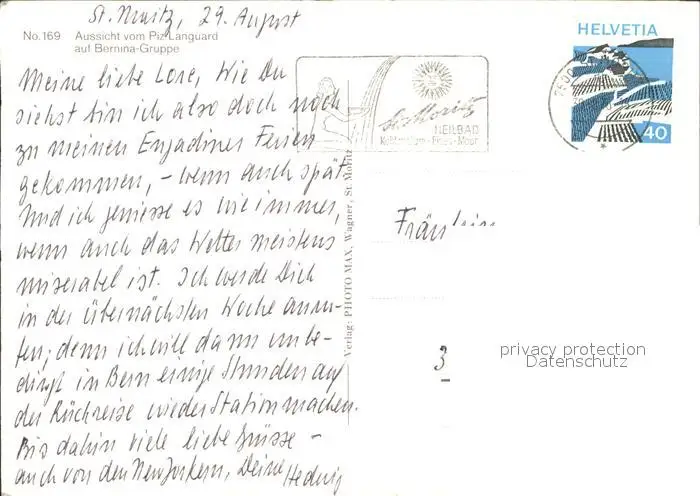 St. Moritz, 29. August
No. 169 Aussicht vom Piz Languard
auf Bernina-Gruppe
Meine liebe Lore, Wie Du
siehst bin ich also doch noch
zu meinen Engadiner Ferien
gekommen, – wenn auch spät.
Und ich geniesse es wie immer,
wenn auch das Wetter meistens
miserabel ist. Ich werde Dich
in der übernächsten Woche anru-
fen; denn ich will dann unbe-
dingt in Bern einige Stunden auf
der Rückreise wieder Station machen.
Bis dahin viele liebe Grüsse –
auch von den New Yorkern, Deine Hedwig
Verlag: PHOTO MAX, Wagner, St. Moritz
St. Moritz
HEILBAD
HELVETIA
40
Fräulein
3
privacy protection
Datenschutz